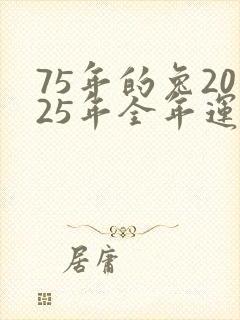 75年的兔20
25年全年運
居庸